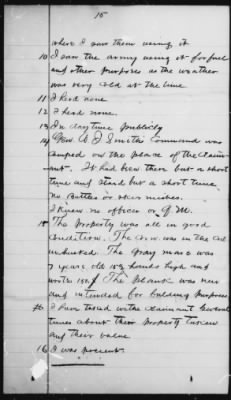 15
where I saw them using it
10 I saw the army using it for fuel
and other purposes as the weather
was very cold at the time
11 I head none
12 I head none.
13 In day time publicly
14 Gen A J Smiths Command was
camped on the place of the Claim-
ant. It had been there but a short
time and staid but a short time
no Battles or skirmishes.
I knew no officer or Q M.
15 The property was all in good
Condition. The Corn was in the
unhusked. The Gray mare was
7 years old 15½ hands high and
worth 150. The Plank was new
and intended for building purposes
I have talked with Claimant several
times about their property taken
and their value
16 I was present.